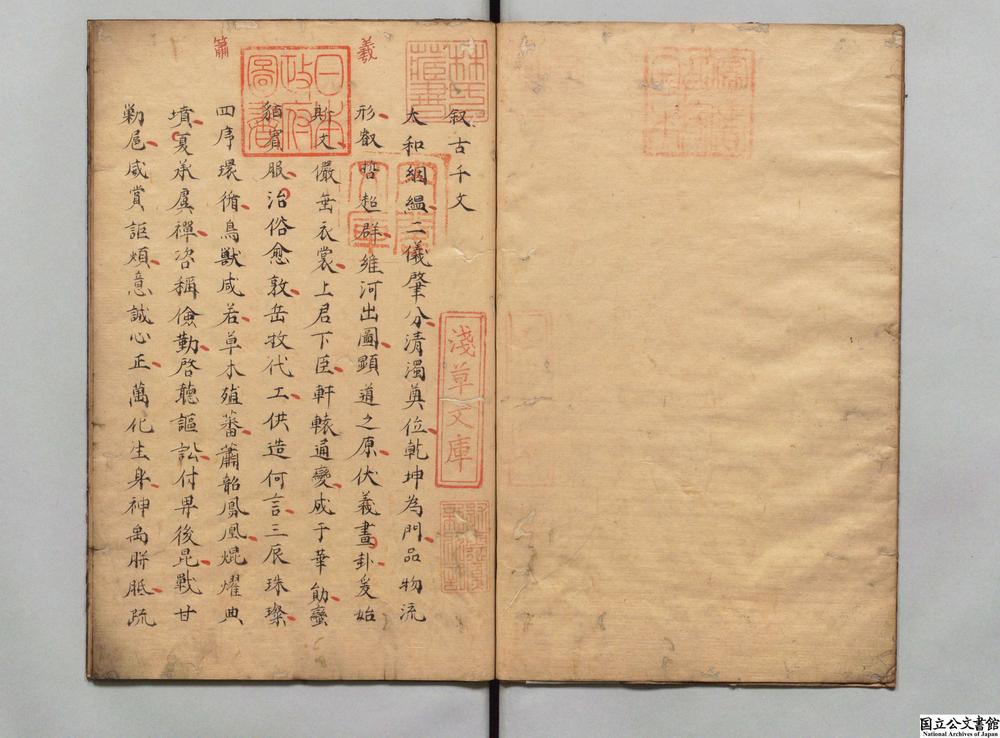 叙古千文
大和絪縕二儀肇分清濁奠位乾坤為門品物流
羲
形叡哲超群維河出圖顯道之原伏義畫卦爰始
斯文儼垂衣裳上君下臣軒轅通變成于華勛蠻
貊賓服治俗愈敦岳牧代工供造何言三辰珠璨
簫
四序環循鳥獸咸若草木殖蕃蕭韶鳳凰焜燿典
墳夏承虞禪咨稱儉勤啓聽謳訟付畀後昆戰甘
勦扈咸賞詎煩意誠心正萬化生身神禹胼胝疏
林氏藏書
日本政府圖書
淺草文庫
国立公文書館
National Archives of Japan